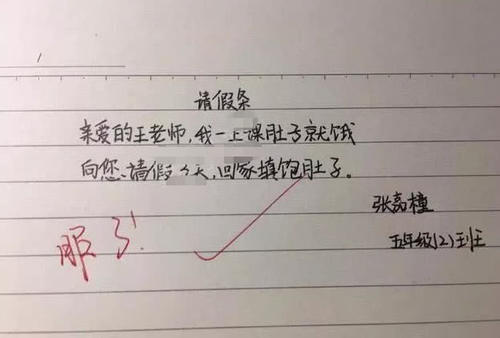 请假条
亲爱的王老师,我一上课肚子就饿
向您请假 天,回家填饱肚子。
张嘉橦
五年级(2)班
服了!